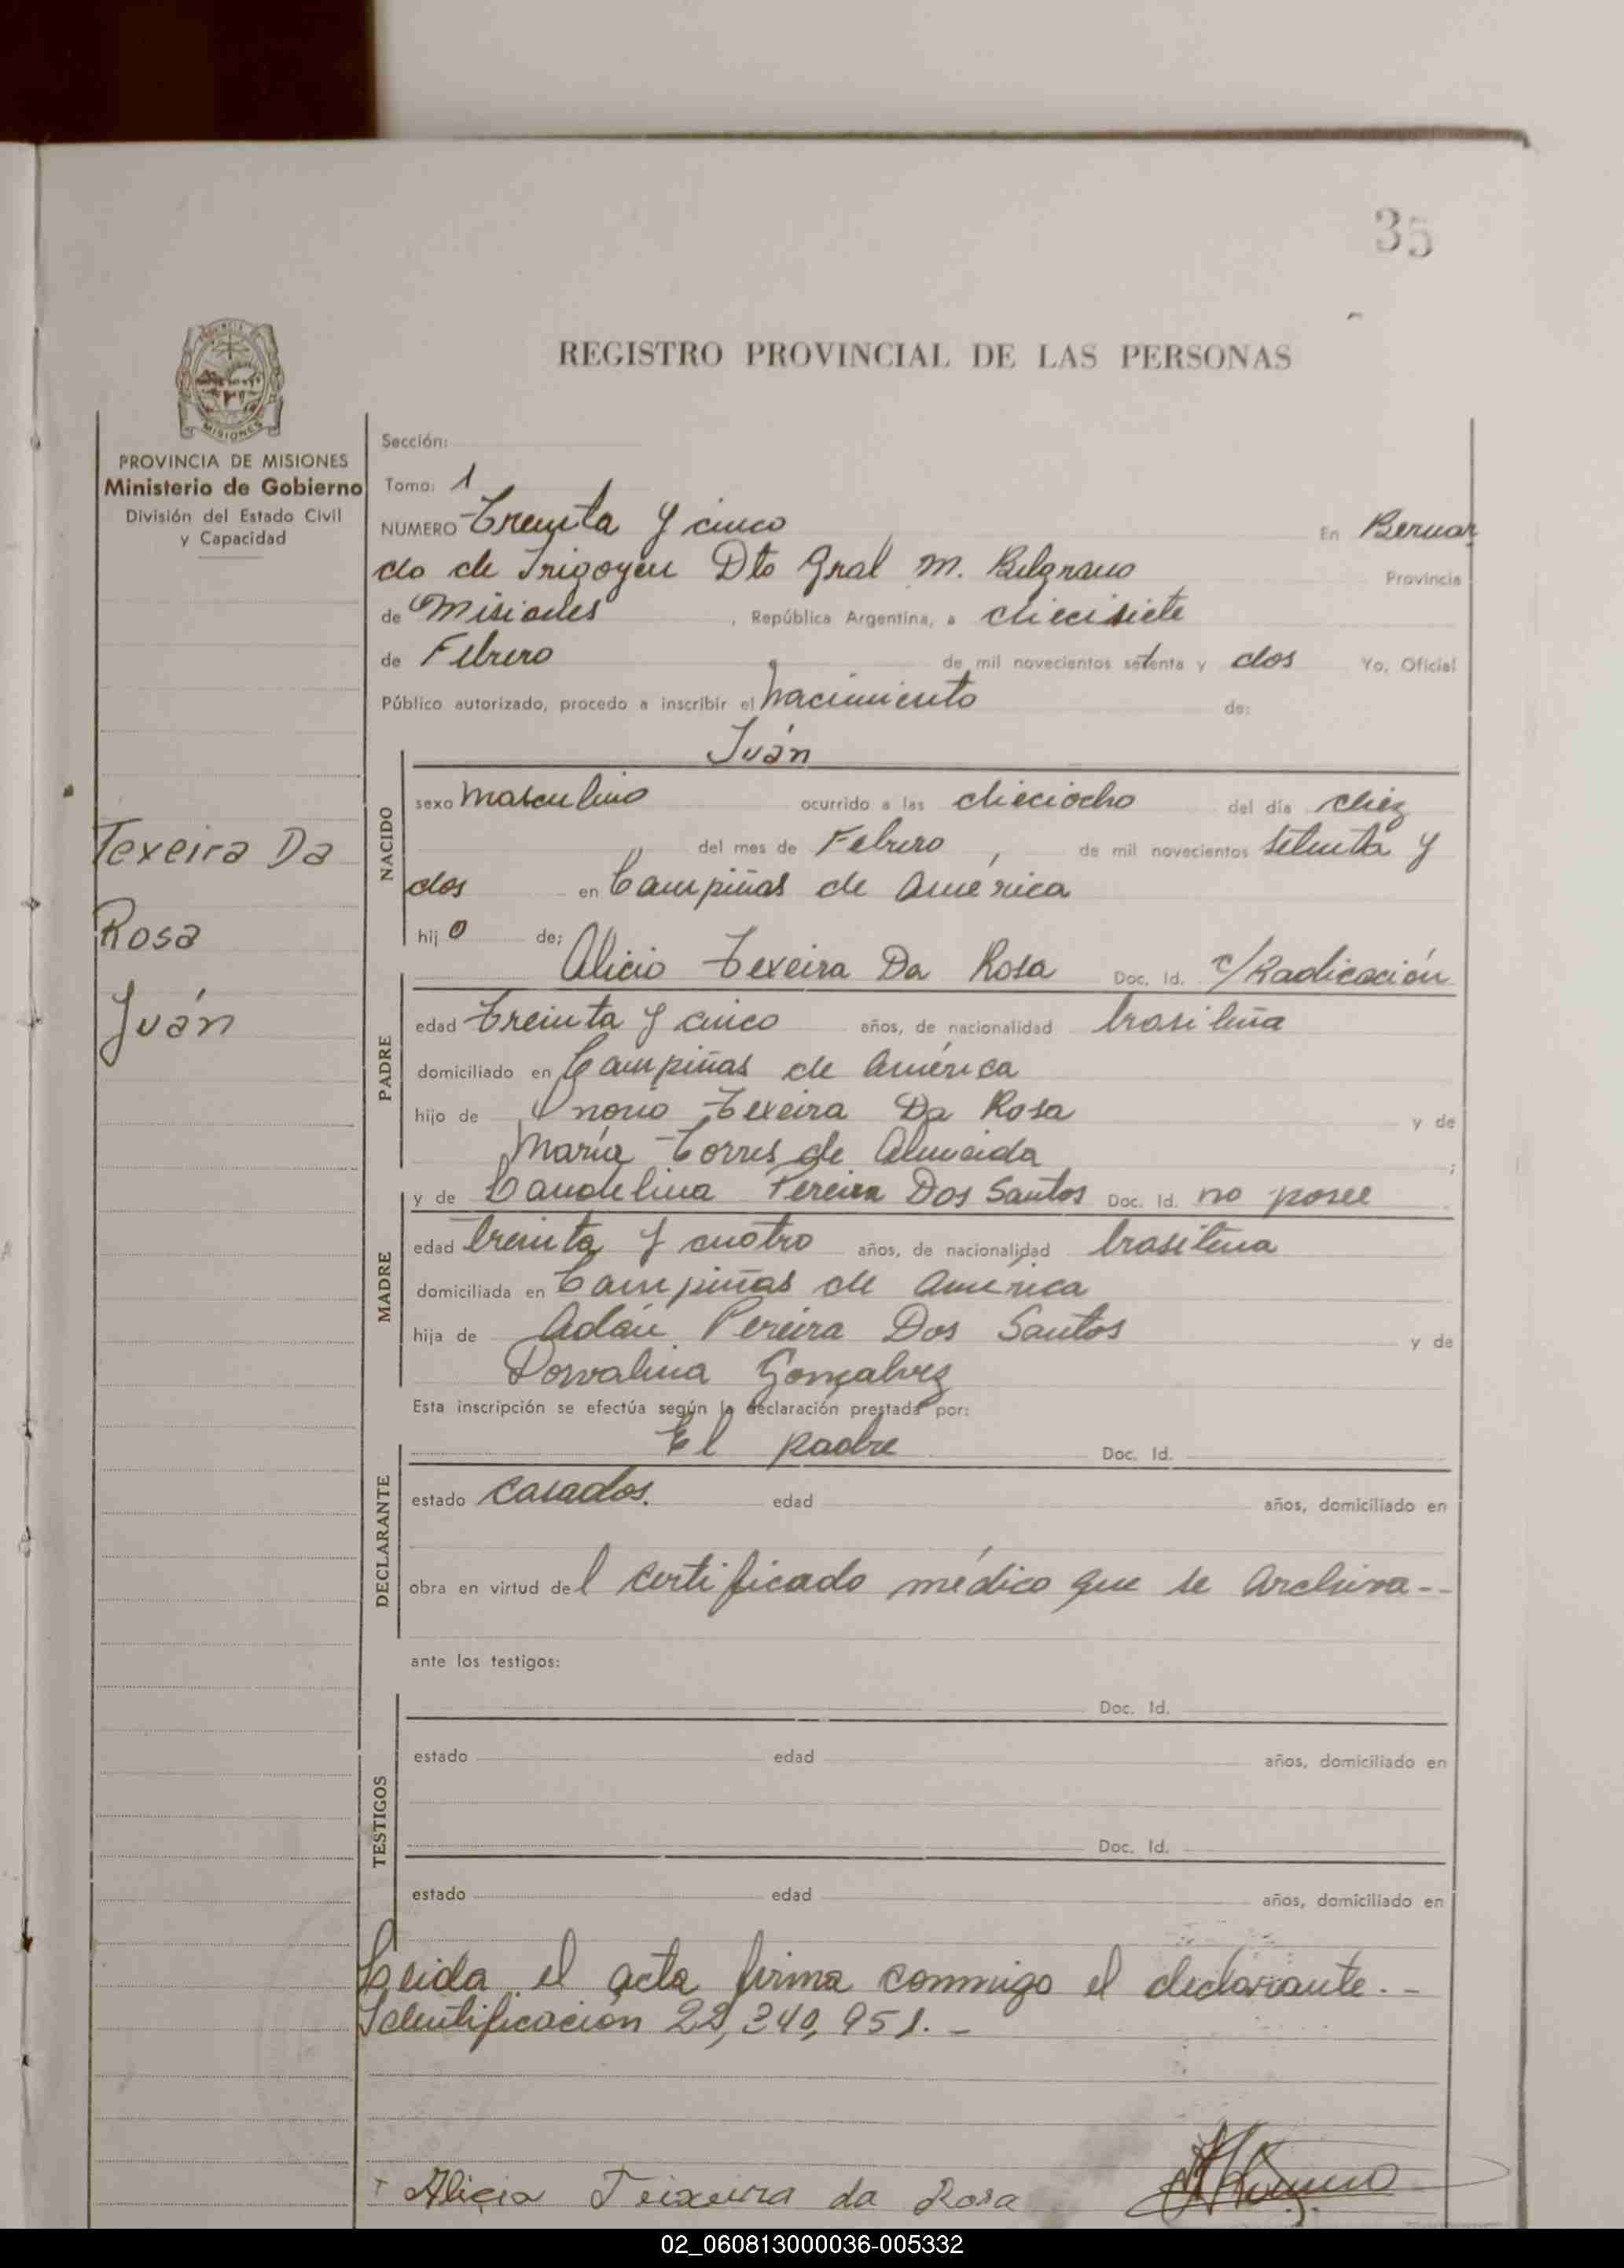 35
REGISTRO PROVINCIAL DE LAS PERSONAS
MISIONES
PROVINCIA DE MISIONES
Ministerio de Gobierno
División del Estado Civil
y Capacidad
Texeira Da
Rosa
Juán
Sección:
Tomo: 1
NUMERO Treinta y cinco En Bernar
do de Irigoyen Dto Gral M. Belgrano Provincia
de Misiones, República Argentina, a diecisiete
de Febrero de mil novecientos setenta y dos Yo, Oficial
Público autorizado, procedo a inscribir el nacimiento de:
Juán
NACIDO
sexo masculino ocurrido a las dieciocho del día diez
del mes de Febrero, de mil novecientos setenta y
dos en Campiñas de América
hijo de:
PADRE
Alicio Texeira Da Rosa Doc. Id. c/Radicación
edad treinta y cinco años, de nacionalidad brasileña
domiciliado en Campiñas de América
hijo de Onorio Texeira Da Rosa y de
María Torres de Almeida;
MADRE
y de Candelina Pereira Dos Santos Doc. Id. no posee
edad treinta y cuatro años, de nacionalidad brasileña
domiciliada en Campiñas de América
hija de Adán Pereira Dos Santos y de
Dorvalina Gonçalvez
Esta inscripción se efectúa según la declaración prestada por:
DECLARANTE
El padre Doc. Id.
estado casados. edad años, domiciliado en
obra en virtud del certificado médico que se archiva--
ante los testigos:
TESTIGOS
Doc. Id.
estado edad años, domiciliado en
Doc. Id.
estado edad años, domiciliado en
Leida el acta firma conmigo el declarante.-
Identificación 22,340,951.-
Alicio Teixeira da Rosa
02_060813000036-005332